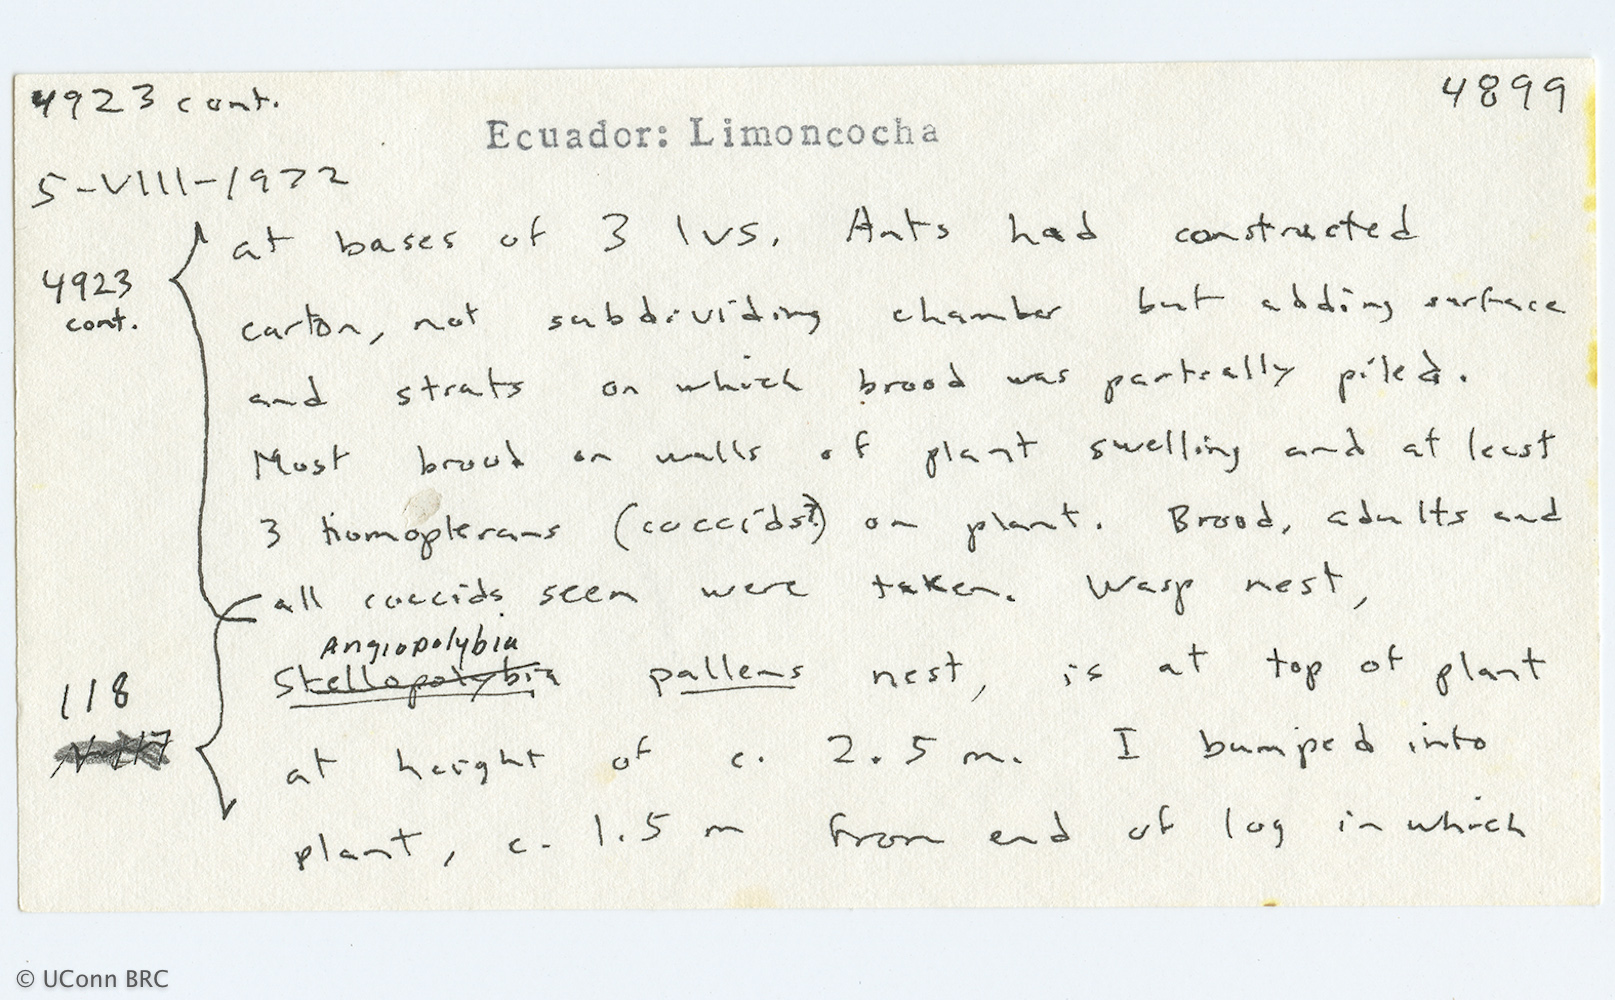 4923 cont.
4899
Ecuador: Limoncocha
5-VIII-1972
at bases of 3 lvs. Ants had constructed
4923
cont.
carton, not subdividing chamber but adding surface
and struts on which brood was partially piled.
Most brood on walls of plant swelling and at least
3 homopterans (coccids?) on plant. Brood, adults and
all coccids seen were taken. Wasp nest,
Angiopolybia
Stellopolybia pallens nest, is at top of plant
118
at height of c. 2.5 m. I bumped into
plant, c. 1.5 m from end of log in which
© UConn BRC